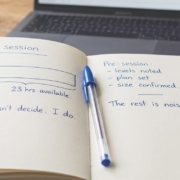 session
23 hrs available.
n't decide. I do.
Pre-session
- levels noted
- plan set
- size confirmed
The rest is nois